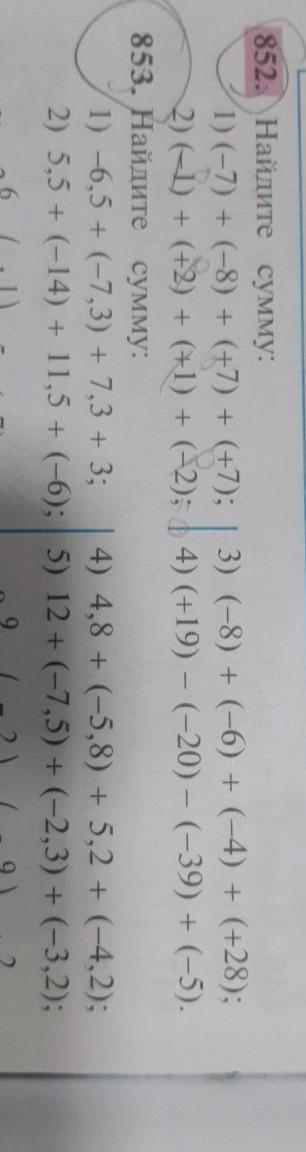 852. Найдите сумму:
1) (–7) + (–8) + (+7) + (+7); 3) (–8) + (–6) + (–4) + (+28);
2) (–1) + (+2) + (+1) + (–2); 4) (+19) – (–20) – (–39) + (–5).
853. Найдите сумму:
1) –6,5 + (–7,3) + 7,3 + 3; 4) 4,8 + (–5,8) + 5,2 + (–4,2);
2) 5,5 + (–14) + 11,5 + (–6); 5) 12 + (–7,5) + (–2,3) + (–3,2);